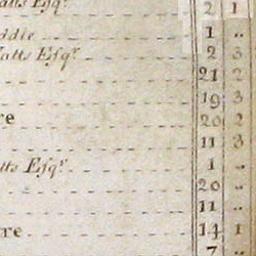 Esqr. 2 1
ddle 1 ..
atts Esqr. 2 3
21 2
19 3
re 20 2
11 3
tts Esqr. 1 ..
20 ..
11 ..
re 14 1
7 ..